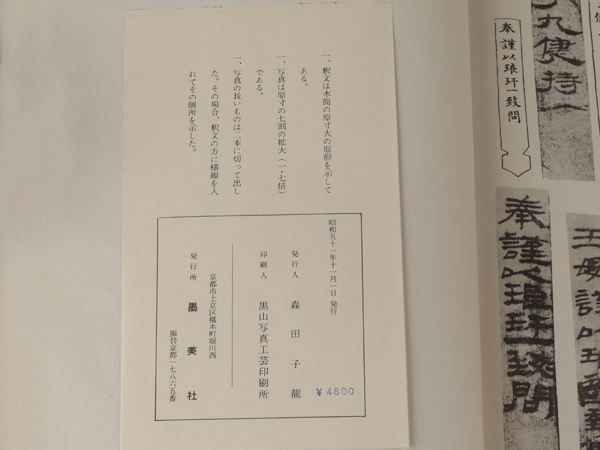 一、釈文は木簡の原寸大の原形を示して
ある。
一、写真は原寸の七割の拡大(一・七倍)
である。
一、写真の長いものは二本に切って出し
た。その場合、釈文の方に横線を入
れてその個所を示した。
昭和五十一年十一月一日 発行
発行人 森田子龍
印刷人 黒山写真工芸印刷所
京都市上京区橘木町堀川西
発行所 墨美社
振替京都一七八六五番
¥4800
八九使待一
奉謹以琅玕一致問
奉謹以琅玕一致問